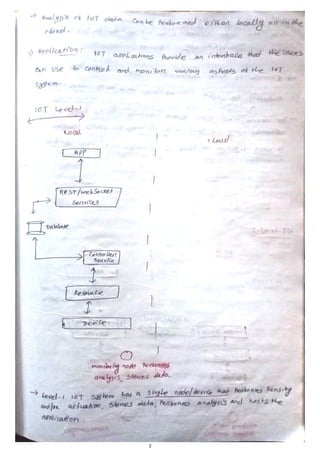 → Analysis of IOT data can be performed either locally or in the
cloud.
Application: IOT applications provide an interface that the users
can use to control and monitors various aspects of the IOT
system.
IOT Level-1
Local
Cloud.
APP
REST/WebSocket
Services
Database
Controller
Service
Resource
Device.
monitoring node performs
analysis, stores data
→ Level-1 IOT System has a single node/device that performs sensing
and/or actuation, stores data, performs analysis and hosts the
application.
2